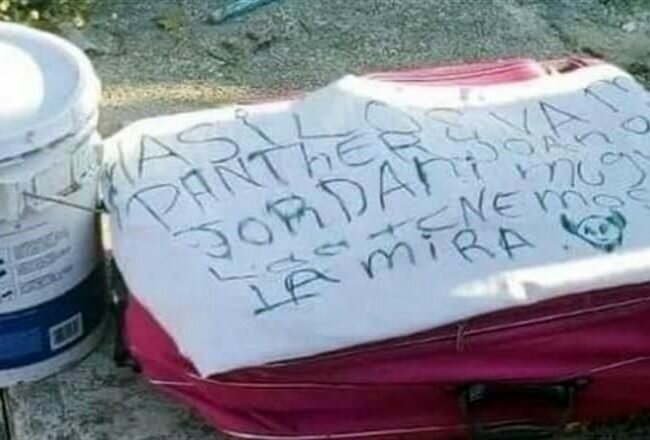 ASI LOS VAM
PANTHER JOANO
JORDANI MUGU
LOS TENEMOS
LA MIRA